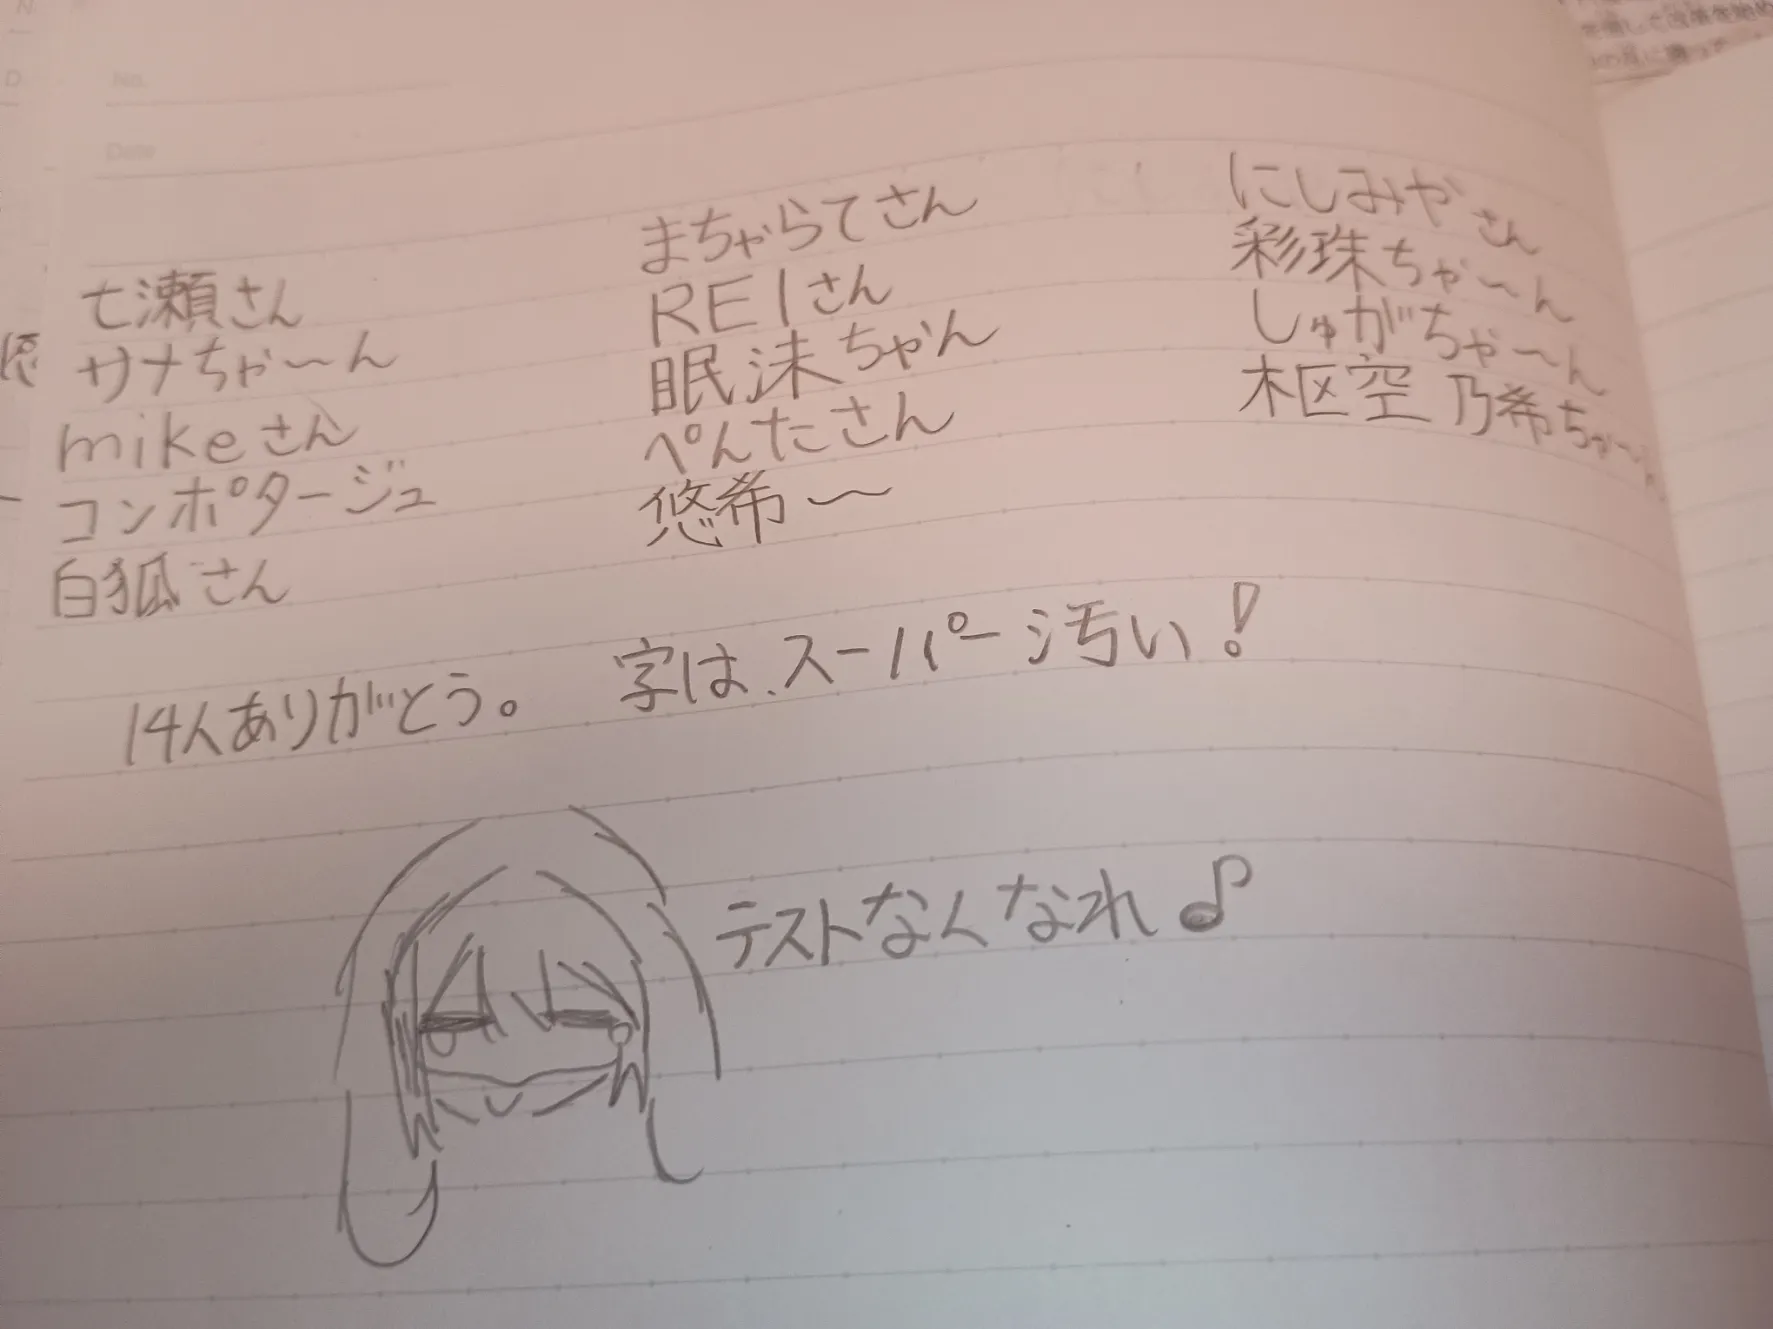 No.
Date
七瀬さん
サナちゃ〜ん
mikeさん
コンポタージュ
白狐さん
まちゃらてさん
REIさん
眠沫ちゃん
ぺんたさん
悠希〜
にしみやさん
彩珠ちゃ〜ん
しゅがちゃ〜ん
枢空 乃希ちゃ〜ん
14人ありがとう。 字は、スーパー汚い!
テストなくなれ♪